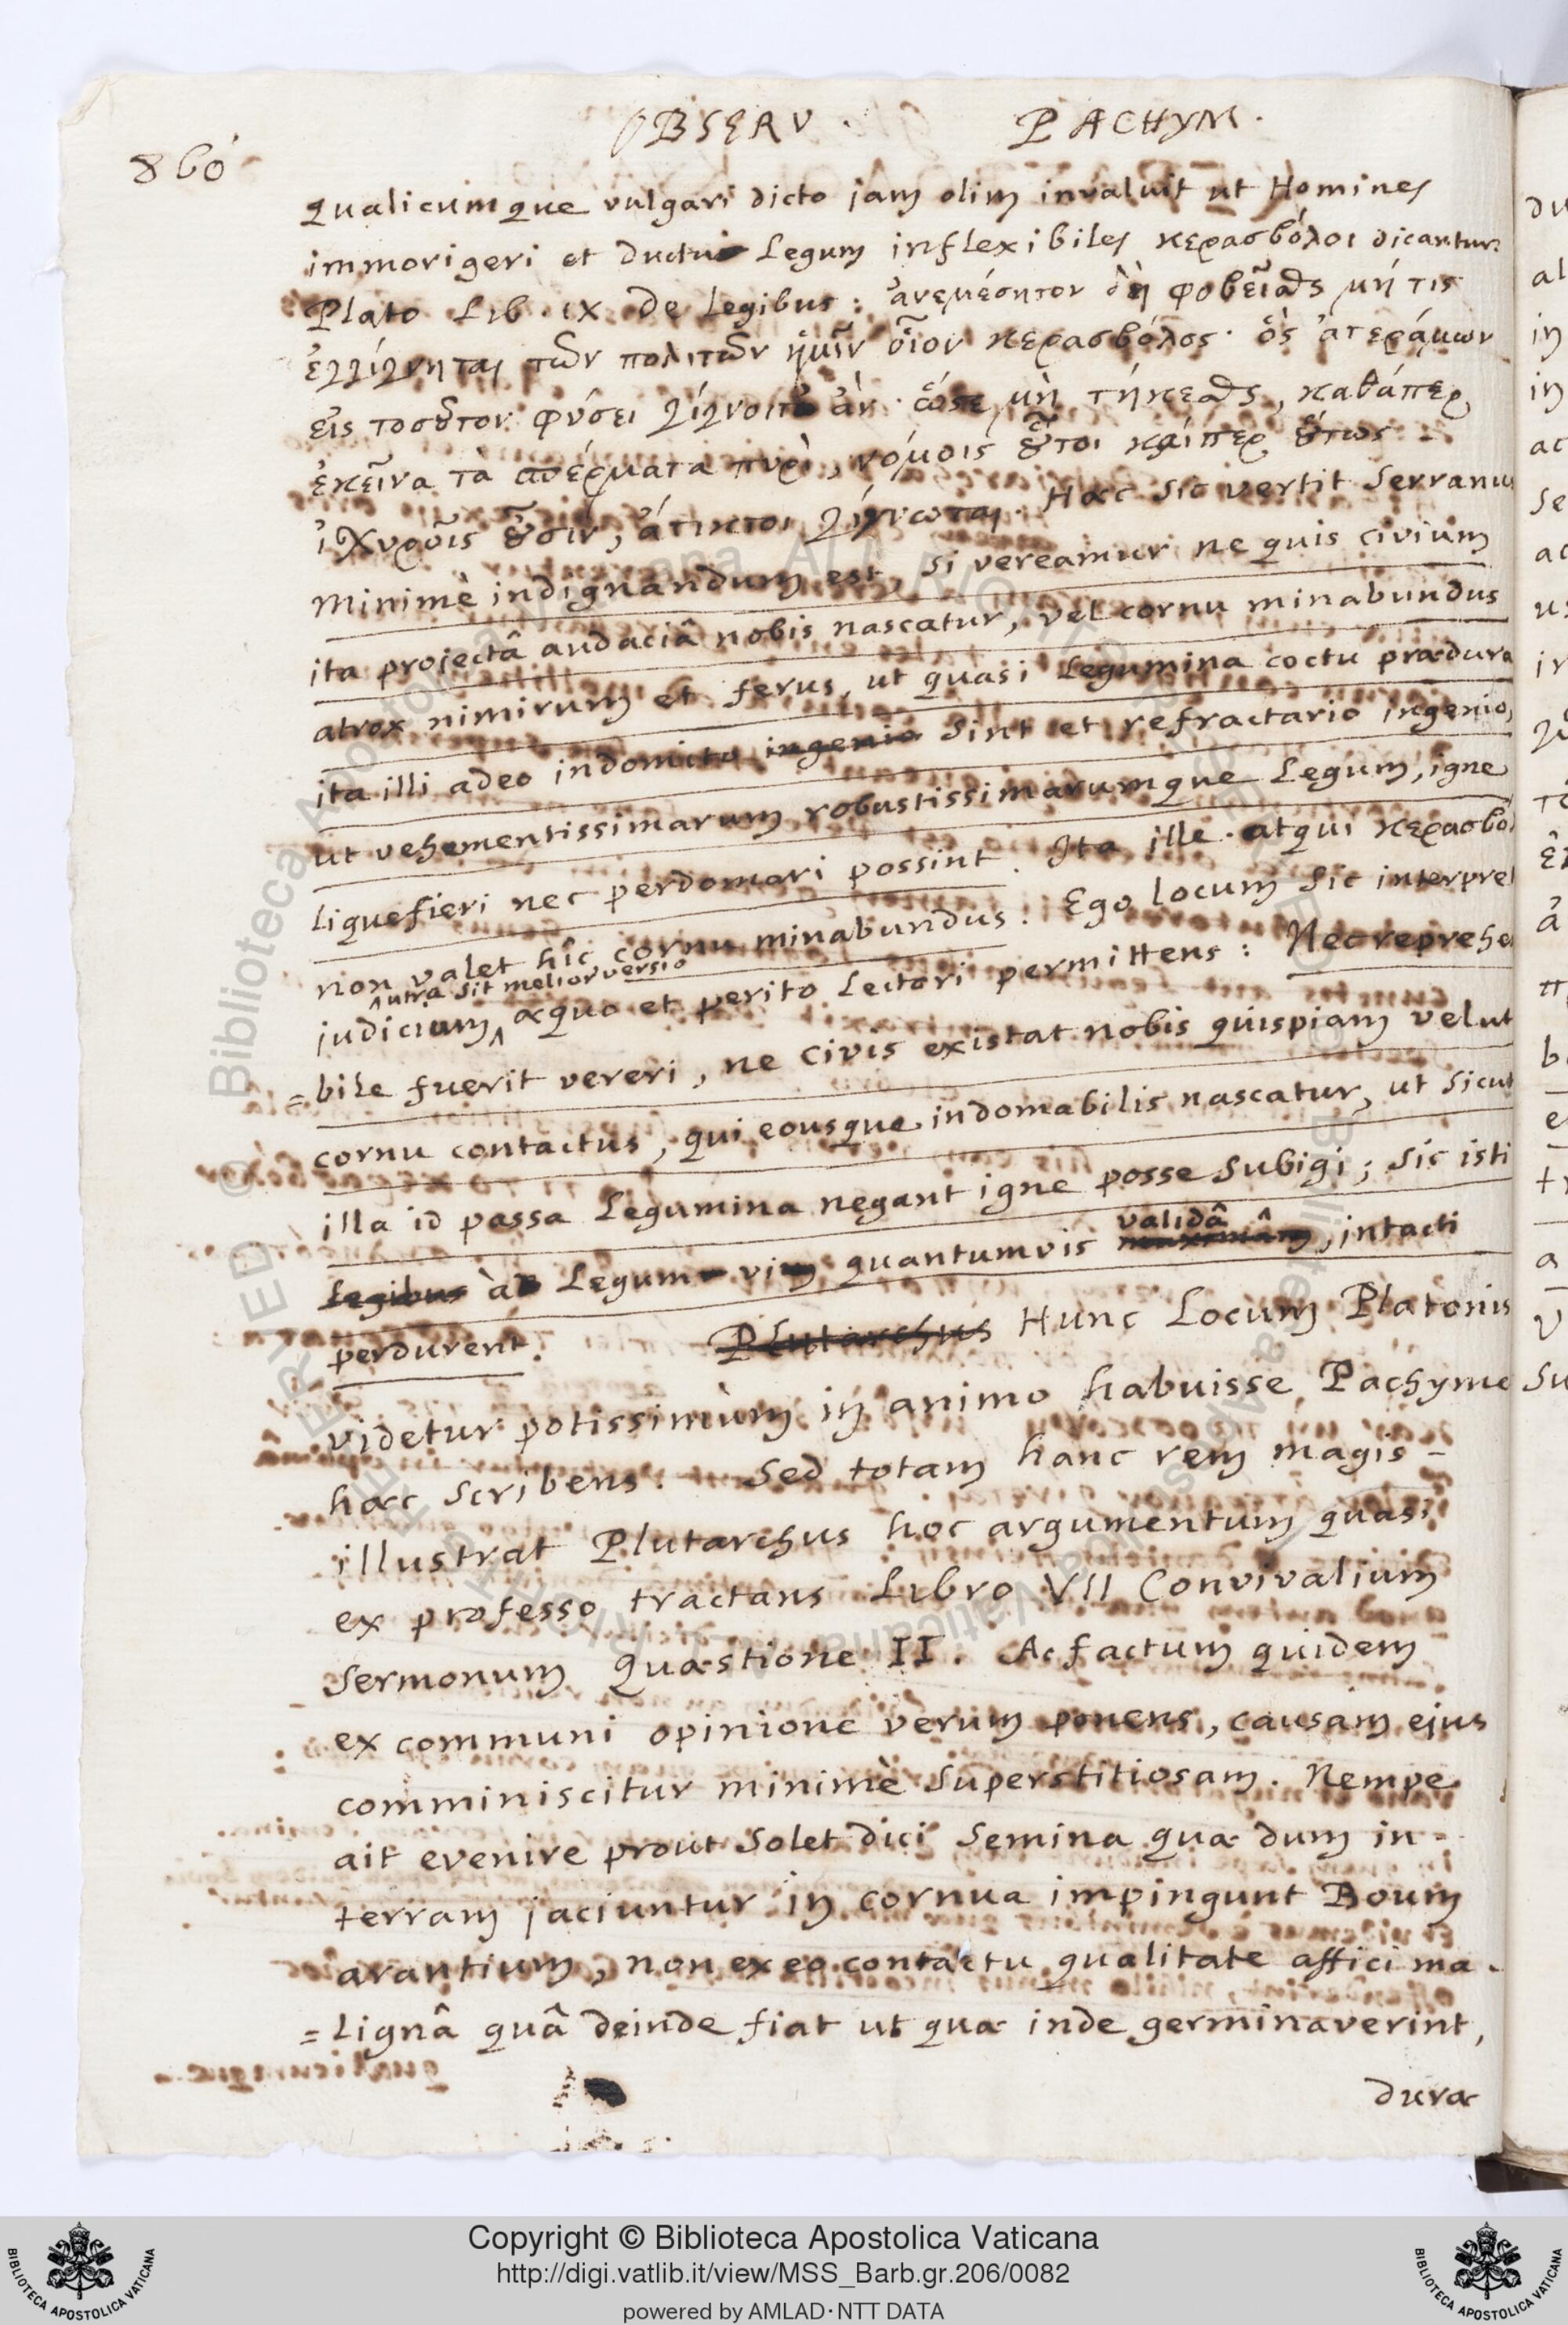 OBSERV. PACHYM.
860
qualicumque vulgari dicto jam olim invaluit ut Homines
immorigeri et ductui Legum inflexibiles κερασβόλοι dicantur.
Plato Lib. IX De Legibus: ἀνεμέσητον δὴ φοβεῖσθαι μή τις
ἐγγίγνηται τῶν πολιτῶν ἡμῖν οἷον κερασβόλος· ὃς ἀτεράμων
εἰς τοσοῦτον φύσει γίγνοιτο ἂν· ὥστε μὴ τήκεσθαι, καθάπερ
ἐκεῖνα τὰ σπέρματα πυρὶ, νόμοις οὗτοι καίπερ οὕτως
ἰσχυροῖς οὖσιν, ἄτηκτοι γίγνωνται. Hæc sic vertit Serranus
Minimè indignandum est, si vereamur ne quis civium
ita projectâ audaciâ nobis nascatur, vel cornu minabundus
atrox nimirum et ferus, ut quasi Legumina coctu prædura
ita illi adeo indomito ingenio sint et refractario ingenio,
ut vehementissimarum robustissimarumque Legum, igne
liquefieri nec perdomari possint. Ita ille. atqui κερασβόλ
non valet hîc cornu minabundus. Ego locum sic interpret
utra sit melior versio
judicium æquo et perito Lectori permittens: Nec reprehe
=bile fuerit vereri, ne civis existat nobis quispiam velut
cornu contactus, qui eousque indomabilis nascatur, ut sicut
illa id passa Legumina negant igne posse subigi; sic isti
validâ
Legibus à Legum vi quantumvis , intacti
perdurent. Plutarchus Hunc Locum Platonis
videtur potissimùm in animo habuisse Pachyme
hæc scribens. Sed totam hanc rem magis -
illustrat Plutarchus hoc argumentum quasi
ex professo tractans Libro VII Convivalium
Sermonum Quæstione II. Ac factum quidem
ex communi opinione verum ponens, causam ejus
comminiscitur minimè superstitiosam. Nempe
ait evenire prout solet dici semina quæ dum in-
terram jaciuntur in cornua impingunt Boum
arantium, non ex eo contactu qualitate affici ma-
=lignâ quâ deinde fiat ut quæ inde germinaverint,
dura
Copyright © Biblioteca Apostolica Vaticana
http://digi.vatlib.it/view/MSS_Barb.gr.206/0082
powered by AMLAD·NTT DATA
BIBLIOTECA APOSTOLICA VATICANA
BIBLIOTECA APOSTOLICA VATICANA